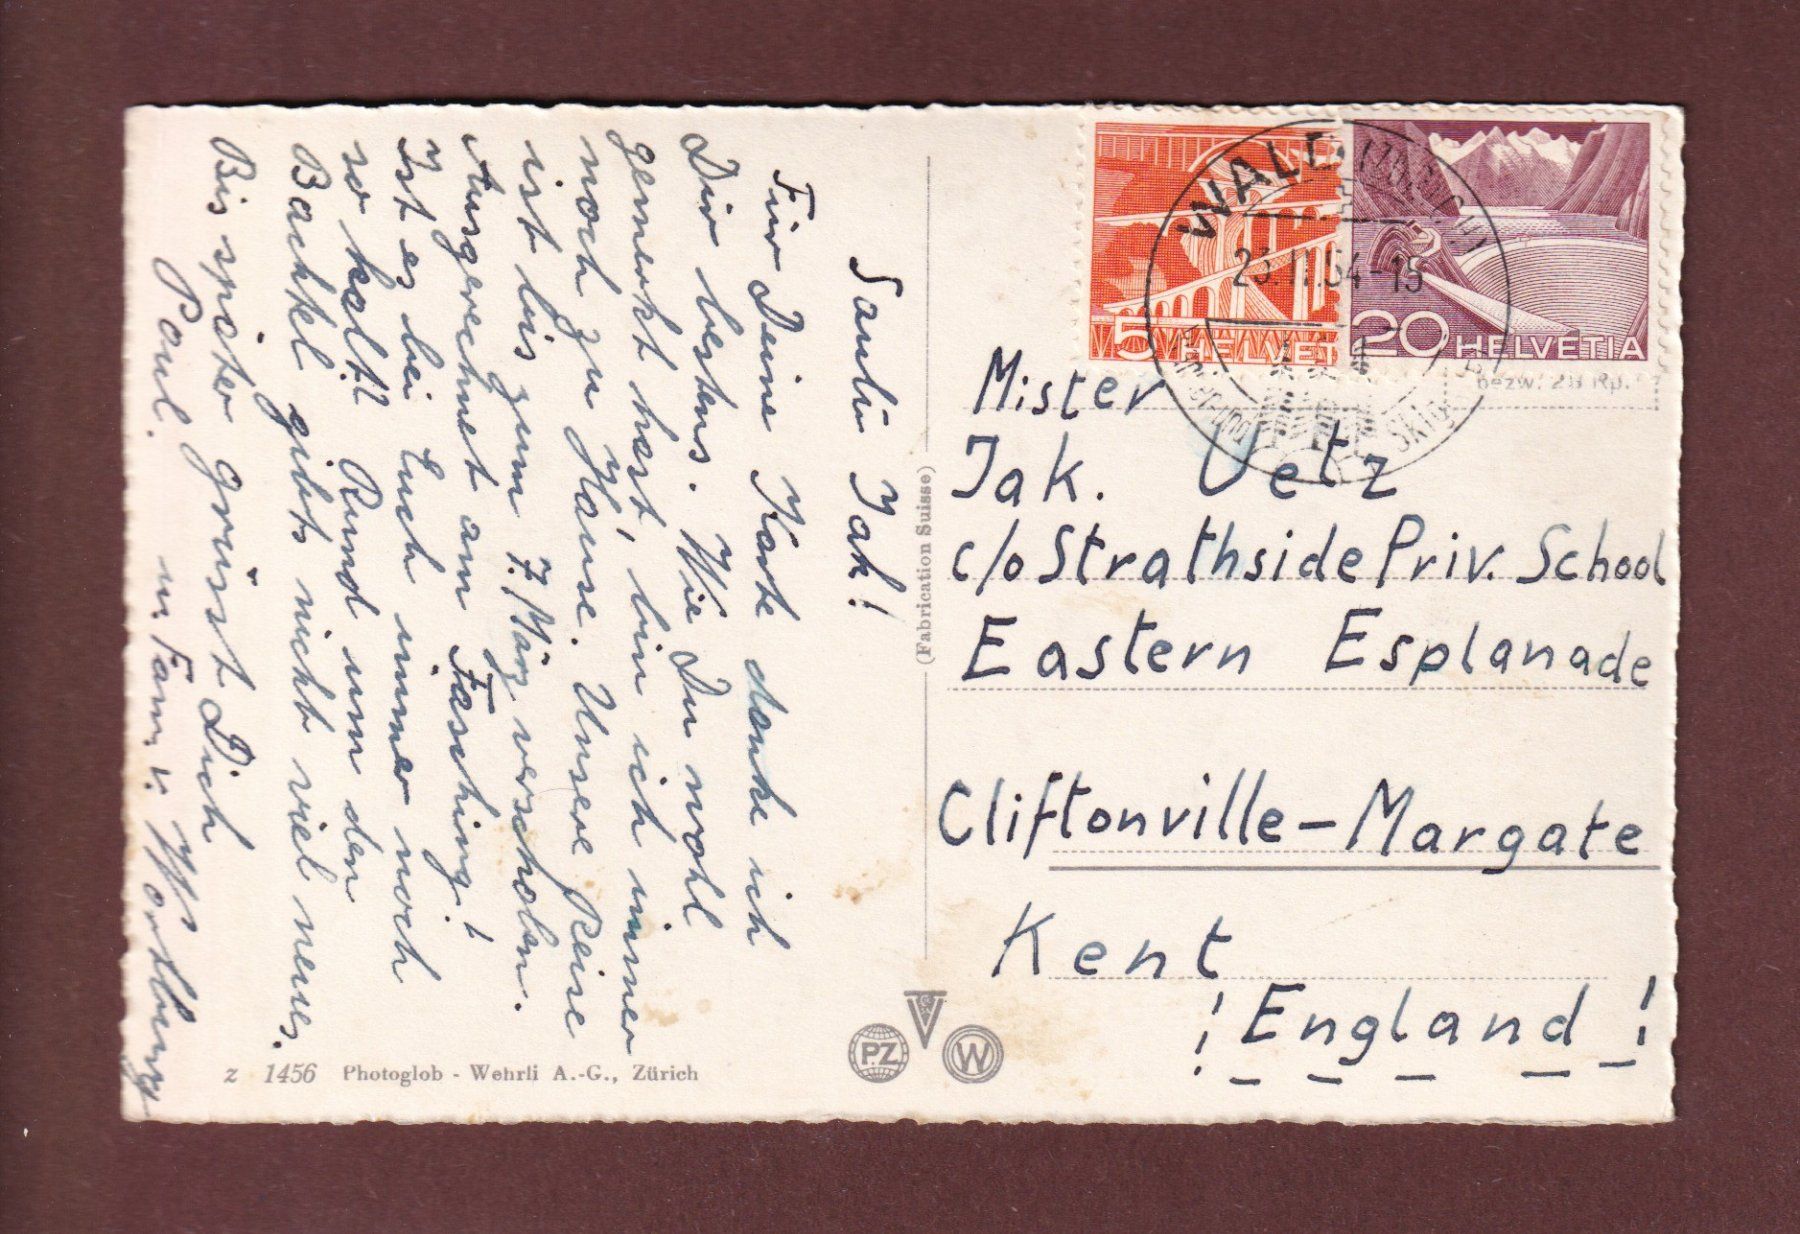 Santi Jak!
Für Deine Karte danke ich
Dir bestens. Wie Du wohl
gemerkt hast, bin ich immer
noch zu Hause. Unsere Reise
ist bis zum 7. März verschoben.
Ausgerechnet am Fasching!
Ist es bei Euch immer noch
so kalt? Rund um den
Bachtel gibts nicht viel neues.
Bis später grüsst Dich
Paul. u. Fam. v.
(Fabrication Suisse)
z 1456 Photoglob - Wehrli A.-G., Zürich
PZ
W
5 HELVET
20 HELVETIA
WALD (ZÜRICH)
23.II.54-15
bezw. 20 Rp.
Mister
Jak. Uetz
c/o Strathside Priv. School
Eastern Esplanade
Cliftonville-Margate
Kent
! England !